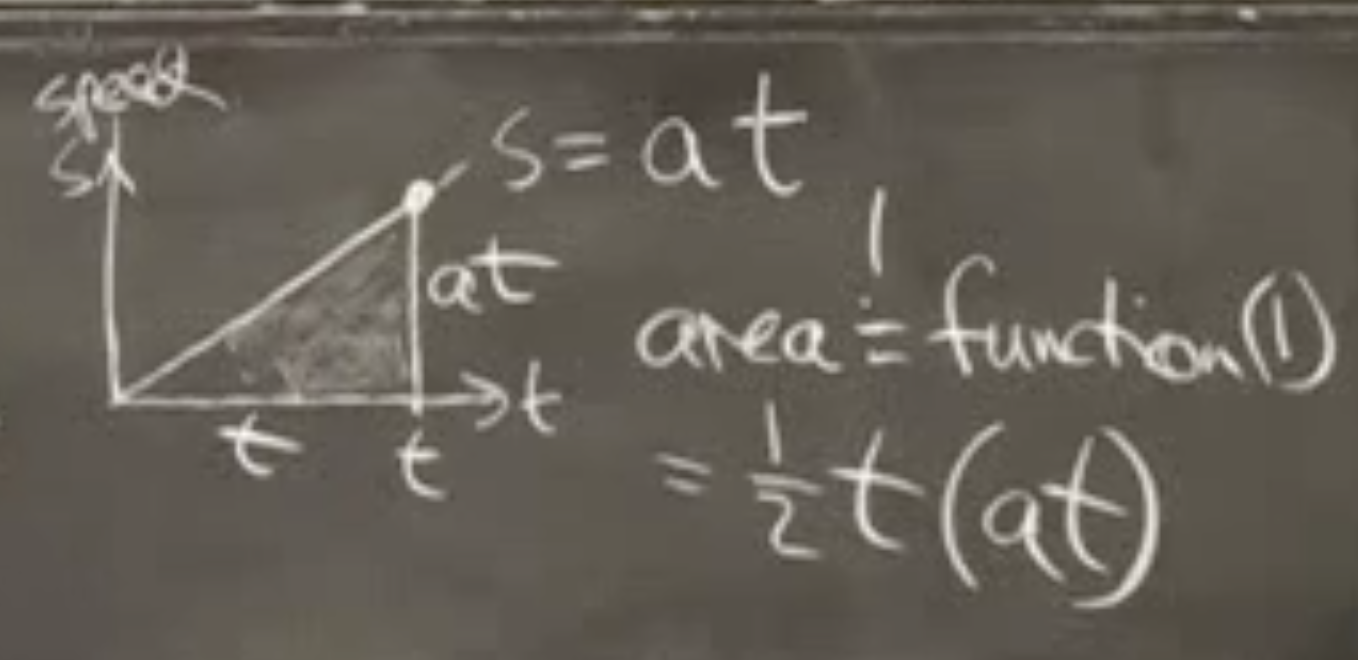 speed
s
s = at
at
t
t
t
!
area = function(1)
= 1/2 t(at)